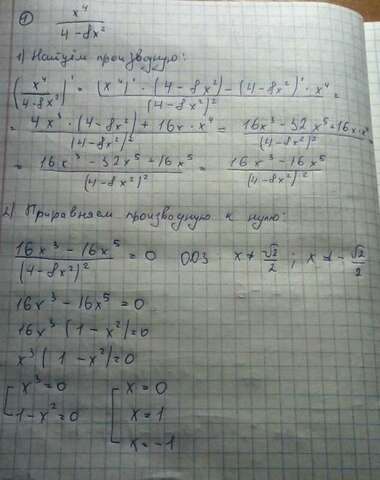 ① x⁴ / (4-8x²)
1) Найдём производную:
(x⁴ / (4-8x²))' = ((x⁴)' · (4-8x²) - (4-8x²)' · x⁴) / (4-8x²)² =
= (4x³ · (4-8x²) + 16x · x⁴) / (4-8x²)² = (16x³ - 32x⁵ + 16x · x⁴) / (4-8x²)²
= (16x³ - 32x⁵ + 16x⁵) / (4-8x²)² = (16x³ - 16x⁵) / (4-8x²)²
2) Приравняем производную к нулю:
(16x³ - 16x⁵) / (4-8x²)² = 0 ОДЗ x ≠ √2/2 ; x ≠ -√2/2
16x³ - 16x⁵ = 0
16x³ (1 - x²) = 0
x³ (1 - x²) = 0
[ x³ = 0 [ x = 0
1 - x² = 0 x = 1
x = -1